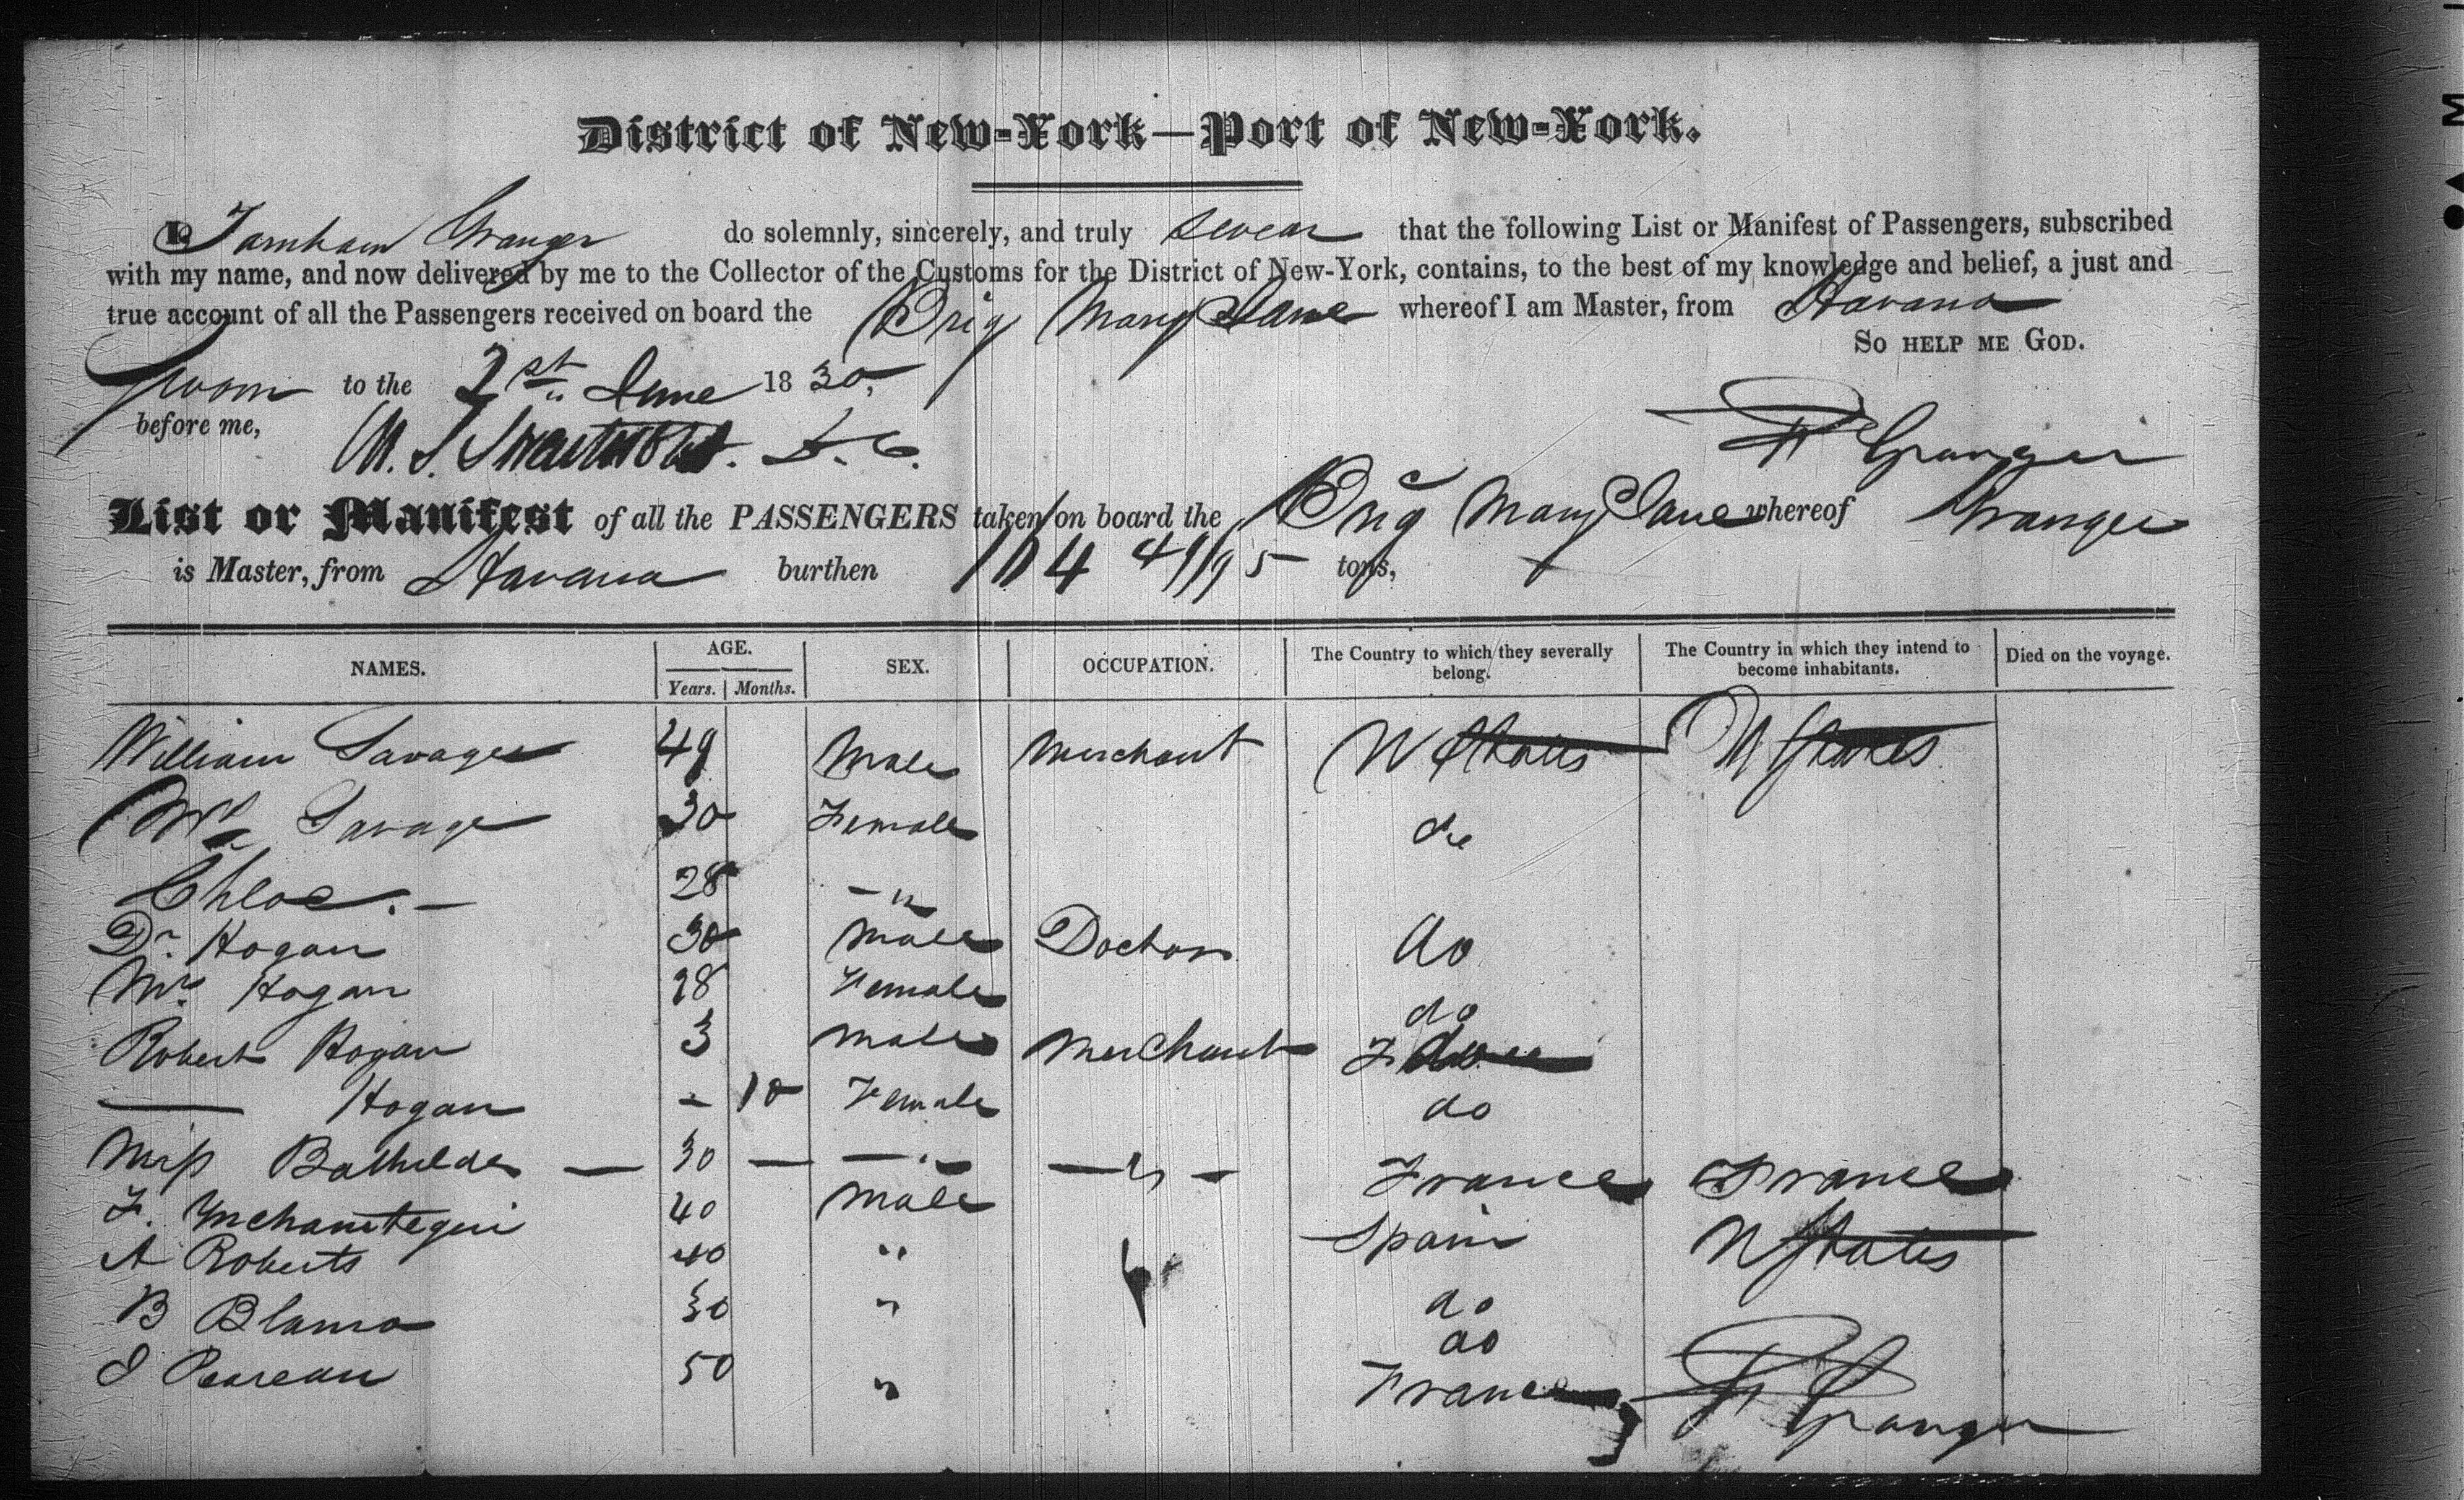 District of New-York—Port of New-York.
I, Farnham Granger do solemnly, sincerely, and truly swear that the following List or Manifest of Passengers, subscribed
with my name, and now delivered by me to the Collector of the Customs for the District of New-York, contains, to the best of my knowledge and belief, a just and
true account of all the Passengers received on board the Brig Mary Jane whereof I am Master, from Havana
So help me God.
Sworn to the 1st June 1830,
before me,
F Granger
List or Manifest of all the PASSENGERS taken on board the Brig Mary Jane whereof Granger
is Master, from Havana burthen 104 49/95 tons,
NAMES. AGE. Years. Months. SEX. OCCUPATION. The Country to which they severally belong. The Country in which they intend to become inhabitants. Died on the voyage.
William Savage 49 Male Merchant U States U States
Mrs Savage 30 Female do
Chloe. — 28 — "
Dr. Hogan 30 Male Doctor do
Mrs Hogan 28 Female do
Robert Hogan 3 Male Merchant do
—— Hogan - 10 Female do
Miss Bathilde — 30 — — " — — " — France France
F. Ynchaustegui 40 Male Spain U States
A Roberts 40 " do
B Blanco 30 " do
J 50 " France
F Granger